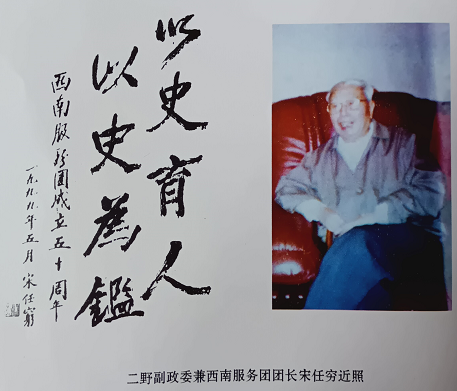 以史育人
以史為鑑
西南服務團成立五十周年
一九九九年五月 宋任窮
二野副政委兼西南服务团团长宋任穷近照